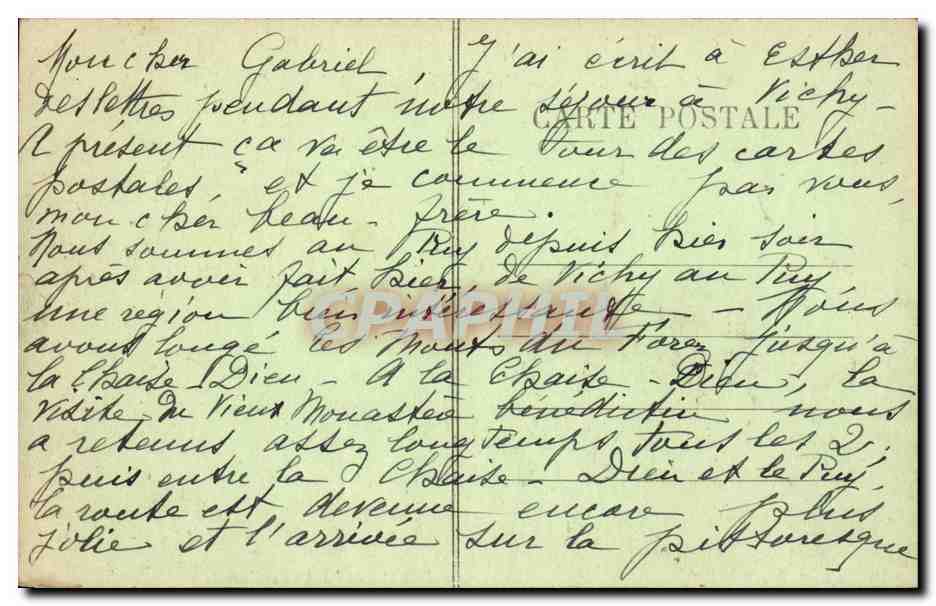 Mon cher Gabriel, J'ai écrit à Esther
des lettres pendant notre séjour à Vichy -
CARTE POSTALE
A présent ça va être le tour des cartes
postales, et je commence par vous,
mon cher beau-frère.
Nous sommes au Puy depuis hier soir
après avoir fait hier de Vichy au Puy
une région bien intéressante - Nous
CPAPHIL
avons longé les Monts du Forez jusqu'à
la Chaise-Dieu - A la Chaise-Dieu, la
visite du Vieux Monastère bénédictin nous
a retenus assez longtemps tous les 2,
puis entre la Chaise-Dieu et le Puy,
la route est devenue encore plus
jolie et l'arrivée sur la pittoresque